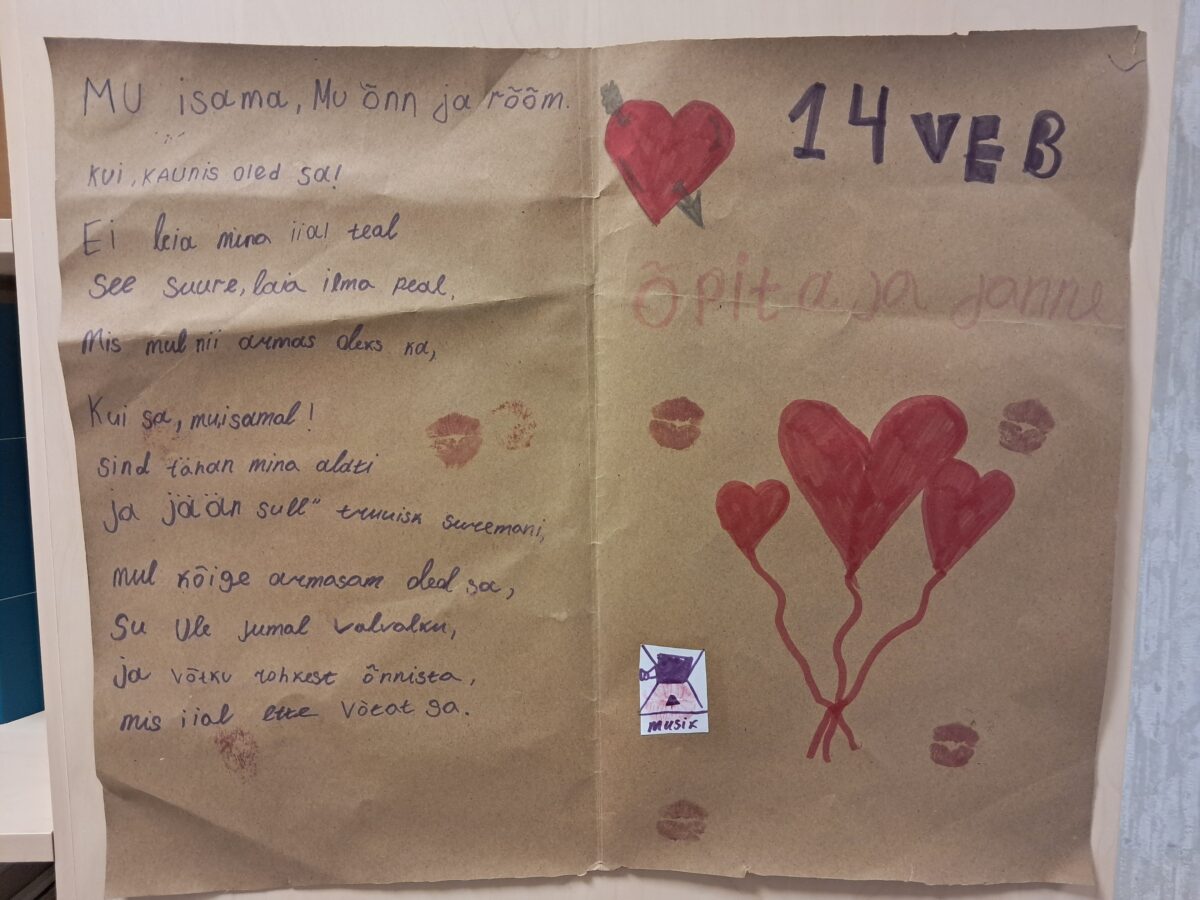 MU isama, MU õnn ja rõõm.
KUI, KAUNIS oled sa!
Ei leia mina iial teal
see suure, laia ilma peal,
Mis mul nii armas oleks ka,
Kui sa, mu,isamal!
sind tänan mina alati
ja jään sull" truuisk suremani,
mul kõige armasam oled sa,
Su Ule jumal valvaku,
ja võtku rohkest õnnista,
mis iial ette võtat ga.
14 VEB
Õpitaja janne
musix